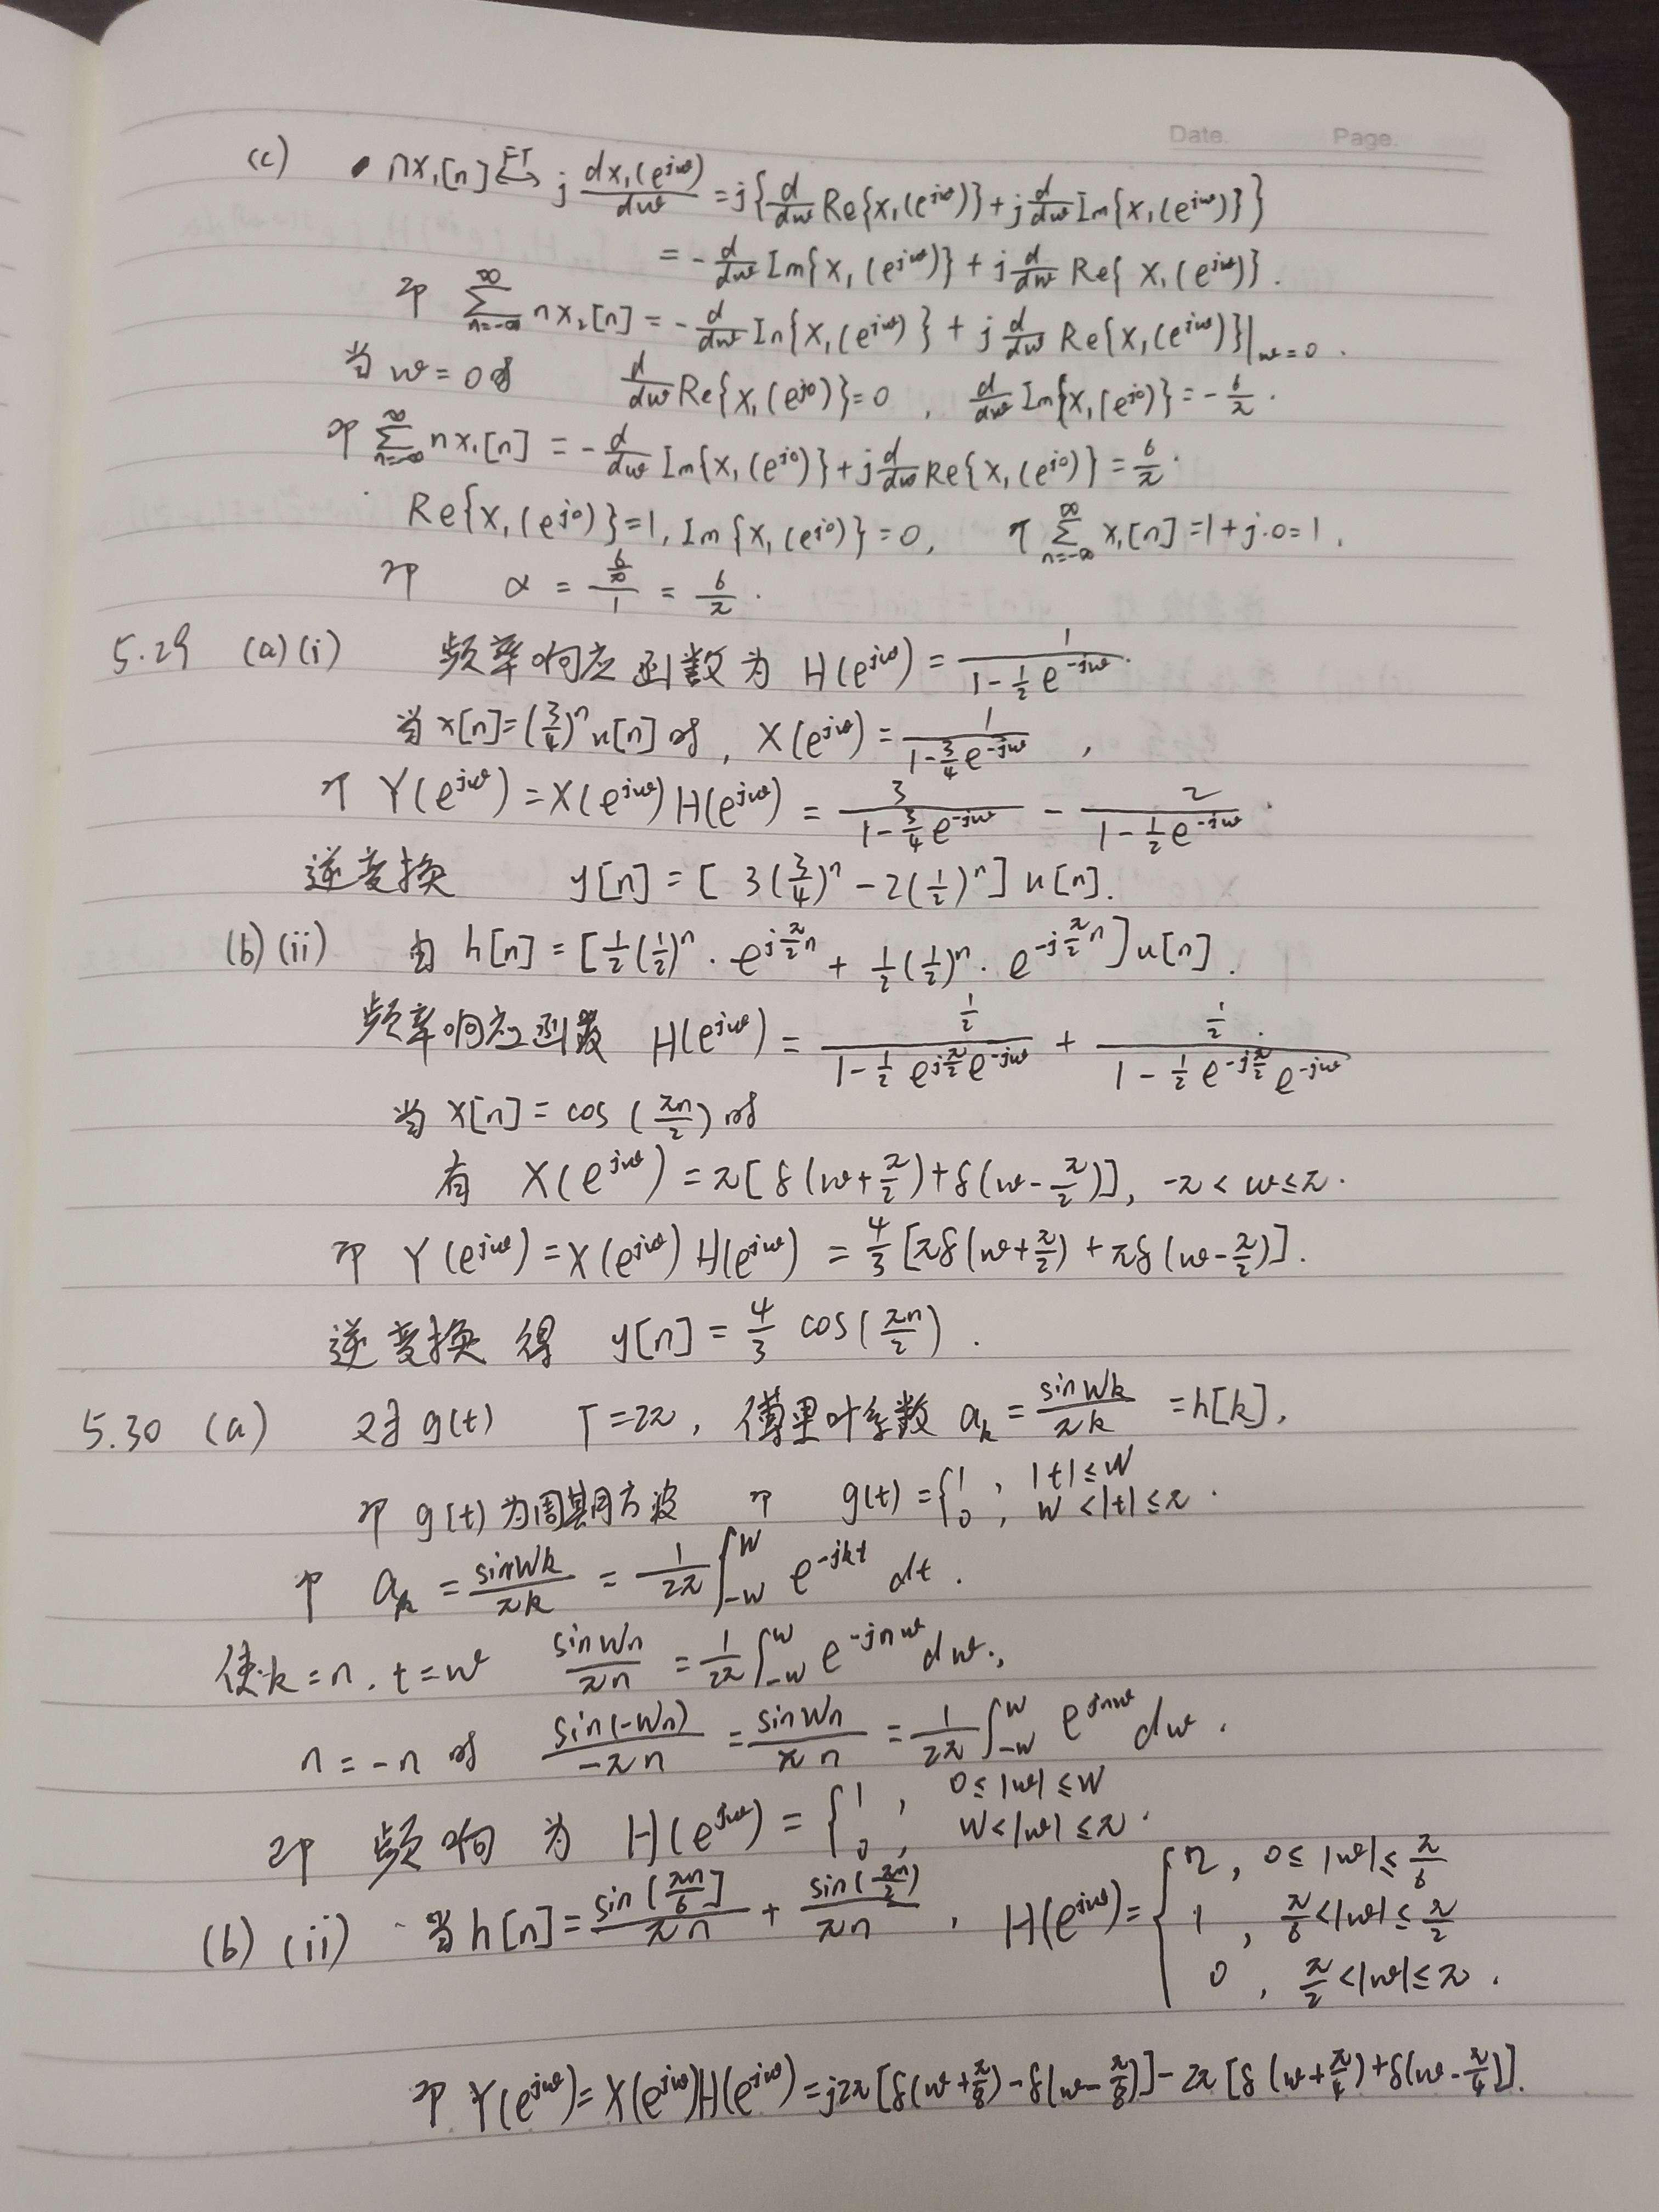 Date. Page.
(c) nx₁[n] ↔FT j dx₁(e^{jω})/dω = j{d/dω Re{X₁(e^{jω})} + j d/dω Im{X₁(e^{jω})}}
= -d/dω Im{X₁(e^{jω})} + j d/dω Re{X₁(e^{jω})}.
即 ∑_{n=-∞}^{∞} nx₂[n] = -d/dω In{X₁(e^{jω})} + j d/dω Re{X₁(e^{jω})}|_{ω=0}.
当 ω=0时 d/dω Re{X₁(e^{j0})}=0, d/dω Im{X₁(e^{j0})} = -6/π.
即 ∑_{n=-∞}^{∞} nx₁[n] = -d/dω Im{X₁(e^{j0})} + j d/dω Re{X₁(e^{j0})} = 6/π.
Re{X₁(e^{j0})}=1, Im{X₁(e^{j0})}=0, 即 ∑_{n=-∞}^{∞} x₁[n] = 1+j·0=1.
即 α = (6/π)/1 = 6/π.
5.29 (a)(i) 频率响应函数为 H(e^{jω}) = 1/(1-½e^{-jω}).
当x[n]=(3/4)^n u[n]时, X(e^{jω}) = 1/(1-¾e^{-jω}),
即 Y(e^{jω}) = X(e^{jω})H(e^{jω}) = 3/(1-¾e^{-jω}) - 2/(1-½e^{-jω}).
逆变换 y[n] = [3(3/4)^n - 2(1/2)^n]u[n].
(b)(ii) 由 h[n] = [½(½)^n · e^{jπ/2 n} + ½(½)^n · e^{-jπ/2 n}]u[n].
频率响应函数 H(e^{jω}) = ½/(1-½e^{jπ/2}e^{-jω}) + ½/(1-½e^{-jπ/2}e^{-jω})
当x[n] = cos(πn/2)时
有 X(e^{jω}) = π[δ(ω+π/2)+δ(ω-π/2)], -π<ω≤π.
即 Y(e^{jω}) = X(e^{jω})H(e^{jω}) = 4/3[πδ(ω+π/2) + πδ(ω-π/2)].
逆变换得 y[n] = 4/3 cos(πn/2).
5.30 (a) 对g(t) T=2π, 傅里叶系数 a_k = sinWk/πk = h[k],
即 g(t)为周期方波 即 g(t) = {1, |t|≤W
0, W<|t|≤π.
即 a_k = sinWk/πk = 1/2π ∫_{-W}^{W} e^{-jkt} dt.
使k=n, t=ω sinWn/πn = 1/2π ∫_{-W}^{W} e^{-jnω} dω.,
n=-n时 sin(-Wn)/-πn = sinWn/πn = 1/2π ∫_{-W}^{W} e^{jnω} dω.
即 频响为 H(e^{jω}) = {1, 0≤|ω|≤W
0, W<|ω|≤π.
(b)(ii) 当h[n] = sin(πn/6]/πn + sin(πn/2)/πn, H(e^{jω}) = {2, 0≤|ω|≤π/6
1, π/6<|ω|≤π/2
0, π/2<|ω|≤π.
即 Y(e^{jω}) = X(e^{jω})H(e^{jω}) = j2π[δ(ω+π/8)-δ(ω-π/8)] - 2π[δ(ω+π/4)+δ(ω-π/4)].